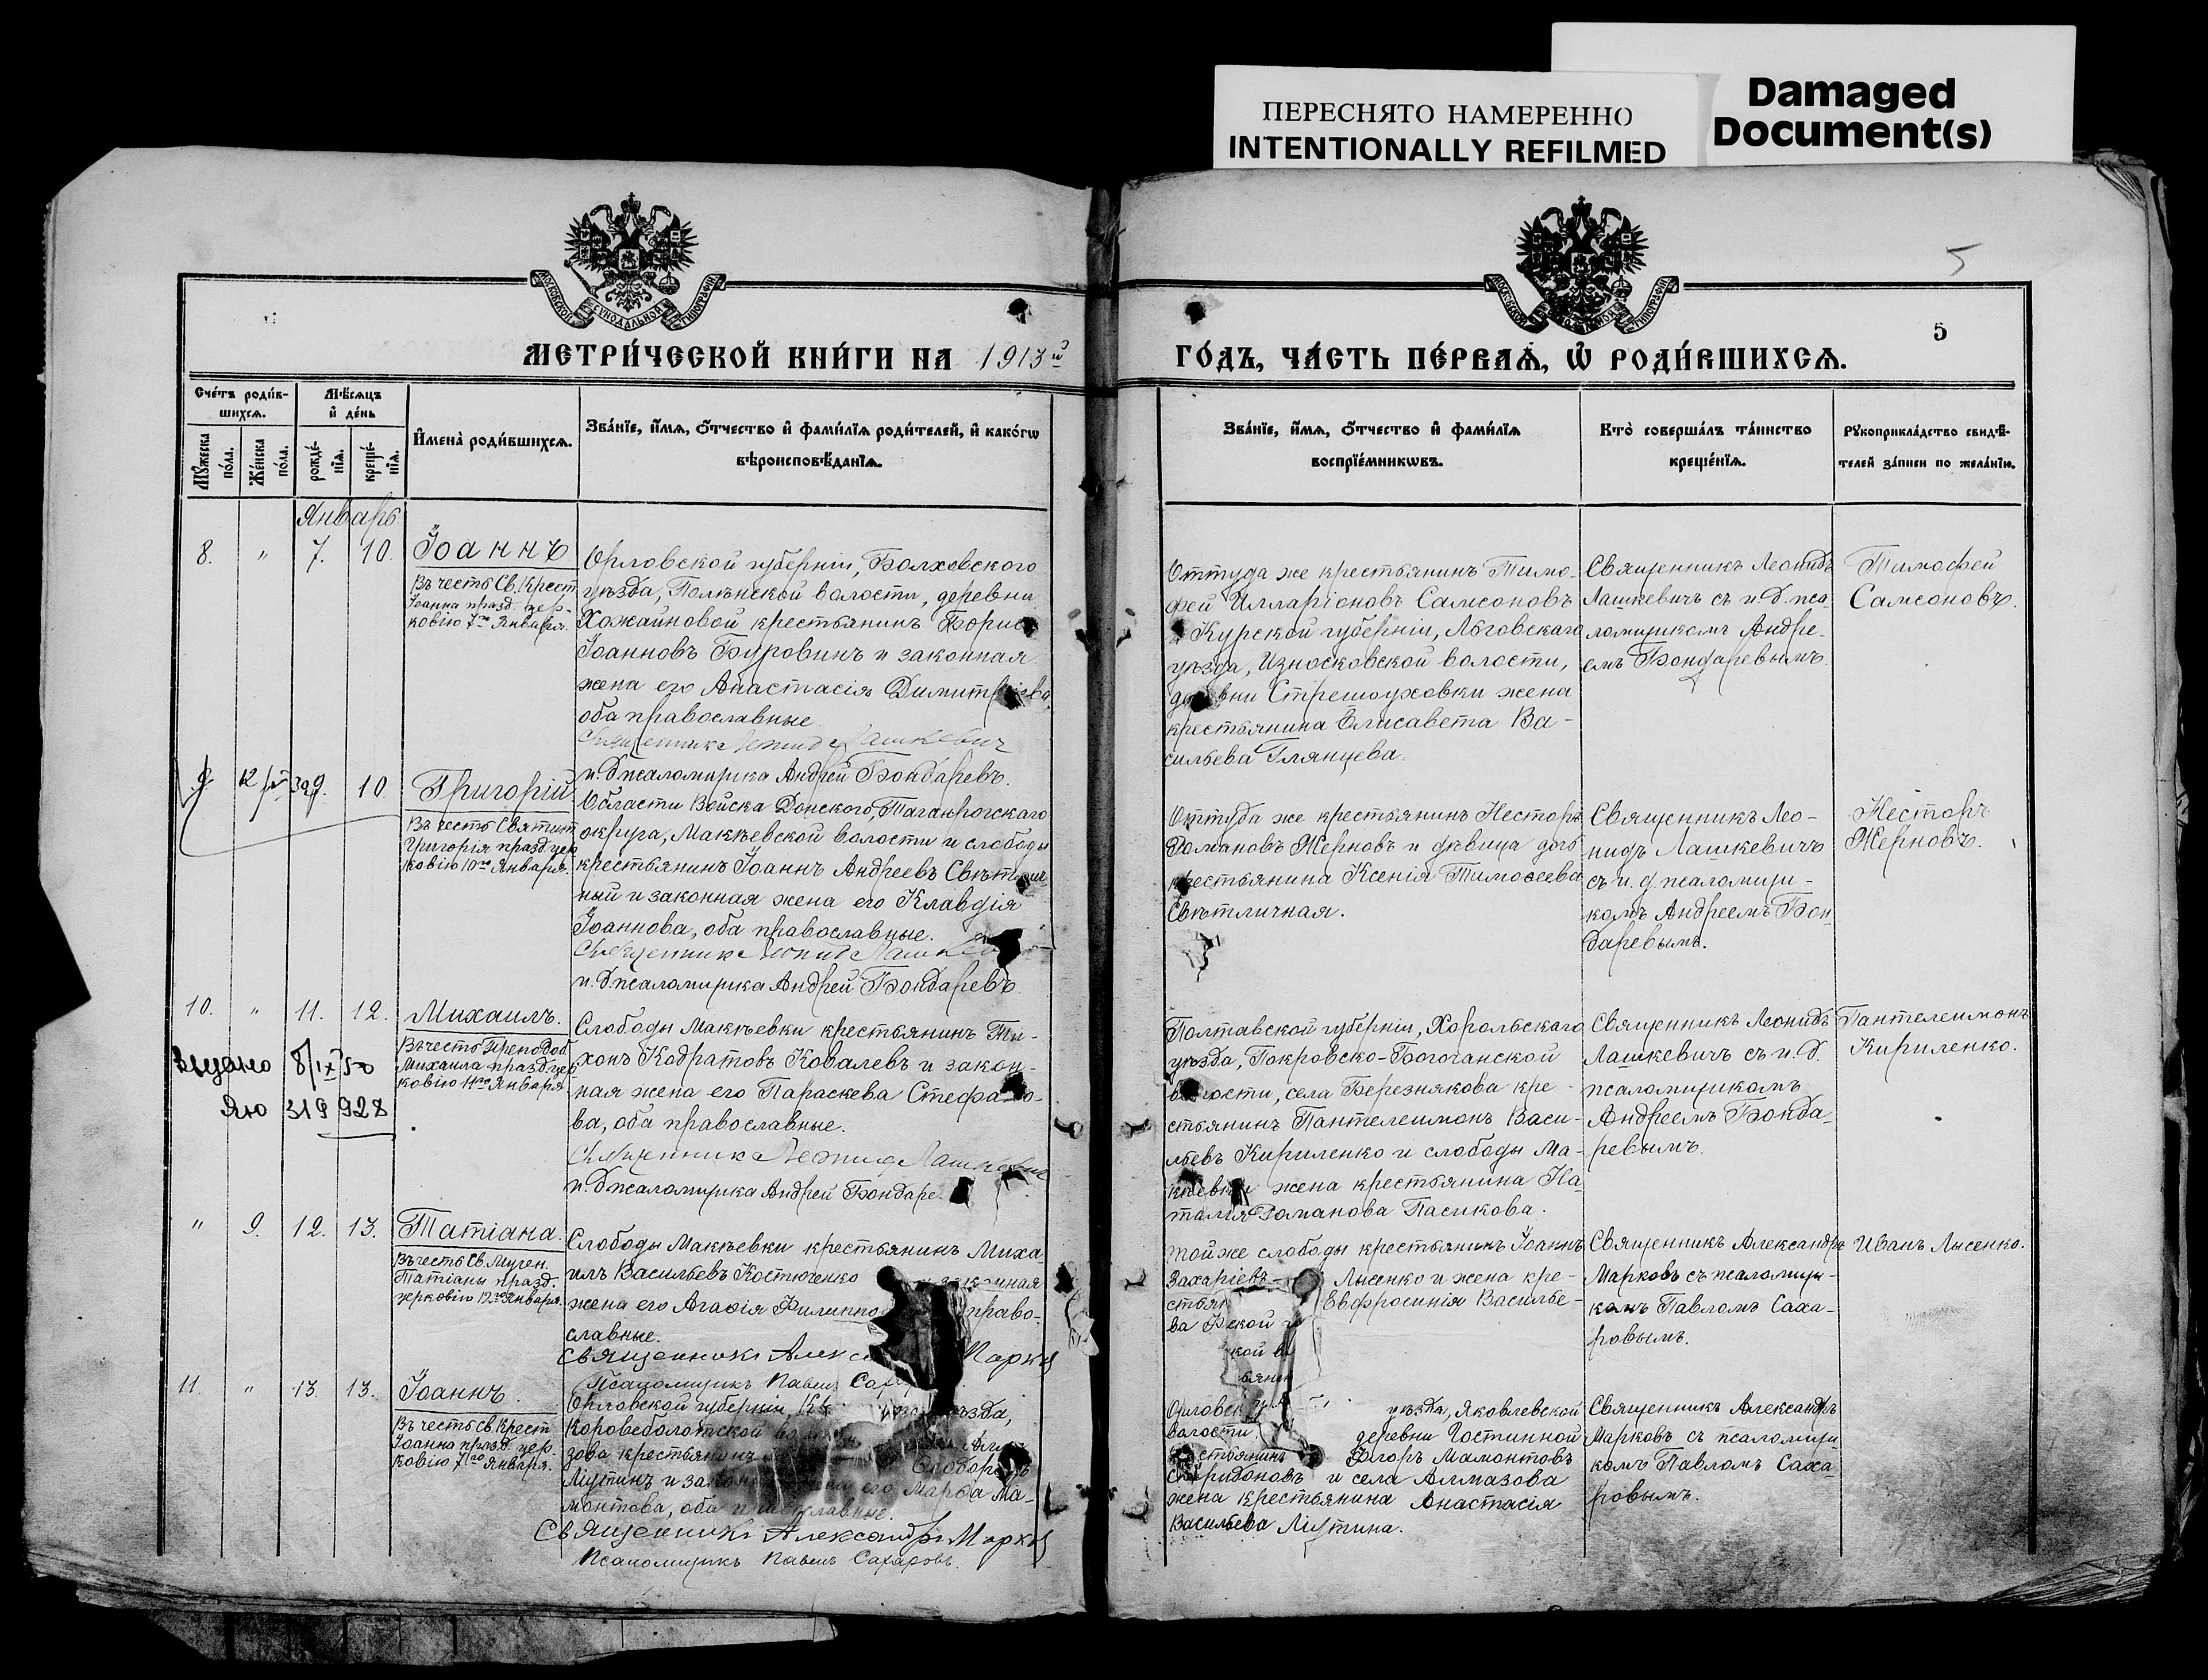 ПЕРЕСНЯТО НАМЕРЕННО
INTENTIONALLY REFILMED
Damaged
Document(s)
5
5
МЕТРИ́ЧЕСКОЙ КНИ́ГИ НА 1913й
ГО́ДЪ, ЧА́СТЬ ПЕ́РВАѦ, Ѡ҆ РОДИ́ВШИХСѦ.
Сче́тъ роди́в-
шихсѧ.
Мѣ́сѧцъ
и҆ де́нь
Мꙋ́жеска
по́ла.
Же́нска
по́ла.
рожде́-
нїѧ.
креще́-
нїѧ.
И҆мена̀ роди́вшихсѧ.
Зва́нїе, и҆́мѧ, ѻ҆́тчество и҆ фами́лїѧ роди́телей, и҆ како́гѡ
вѣроисповѣ́данїѧ.
Зва́нїе, и҆́мѧ, ѻ҆́тчество и҆ фами́лїѧ
воспрїе́мникѡвъ.
Кто̀ соверша́лъ та́инство
креще́нїѧ.
Рꙋкоприкла́дство свидѣ́-
телей за́писи по жела́нїю.
Январь
8. " 7. 10. Іоаннъ
Въ честь Св. Крест.
Іоанна празд. цер-
ковію 7го Января.
Орловской губерніи, Болховского
уѣзда, Полянской волости, деревни
Хожайновой крестьянинъ Борисъ
Іоанновъ Буровинъ и законная
жена его Анастасія Димитріева,
оба православные.
Священник Леонид Лашкевич
и. д. псаломщика Андрей Бондаревъ.
Оттуда же крестьянинъ Тимо-
фей Илларіоновъ Самсоновъ
и Курской губерніи, Льговскаго
уѣзда, Износковской волости,
деревни Стремоуховки жена
крестьянина Елисавета Ва-
сильева Глянцева.
Священникъ Леонидъ
Лашкевичъ съ и. д. пса-
ломщикомъ Андре-
емъ Бондаревымъ.
Тимофей
Самсоновъ.
9. 10. Григорій
Въ честь Святит.
Григорія празд. цер
ковію 10го Января.
Области Войска Донского, Таганрогскаго
округа, Макѣевской волости и слободы
крестьянинъ Іоаннъ Андреевъ Свѣтлич
ный и законная жена его Клавдія
Іоаннова, оба православные.
Священник Леонид
и. д. псаломщика Андрей Бондаревъ
Оттуда же крестьянинъ Несторъ
Романовъ Жерновъ и дѣвица дочь
крестьянина Ксенія Тимоѳеева
Свѣтличная.
Священникъ Лео-
нидъ Лашкевичъ
съ и. д. псаломщи-
комъ Андреемъ Бон
даревымъ.
Несторъ
Жерновъ.
10. " 11. 12. Михаилъ.
Въ честь Преподоб.
Михаила празд. цер
ковію 11го Января
Выдано 8/IX 50
Яю 319928
Слободы Макѣевки крестьянинъ Ти-
хонъ Кодратовъ Ковалевъ и закон-
ная жена его Параскева Стефано-
ва, оба православные.
Священник Леонид Лашкевич
и. д. псаломщика Андрей Бондаре.
Полтавской губерніи, Хорольскаго
уѣзда, Покровско-Богочанской
волости, села Березнякова кре-
стьянинъ Пантелеимонъ Васи-
льевъ Кириленко и слободы Ма-
кѣевки жена крестьянина На
талія Романова Пасикова.
Священникъ Леонидъ
Лашкевичъ съ и. д.
псаломщикомъ
Андреемъ Бонда-
ревымъ.
Пантелеимонъ
Кириленко.
" 9. 12. 13. Татіана.
Въ честь Св. Мучен.
Татіаны празд.
церковію 12го Января.
Слободы Макѣевки крестьянинъ Миха
илъ Васильевъ Костюченко
жена его Агаѳія право-
славные.
Священникъ
Псаломщикъ Павелъ
Той же слободы крестьянинъ Іоаннъ
Захаріевъ Лысенко и жена кре-
Евфросинія Василье-
ва
Священникъ Александръ
Марковъ съ псаломщи-
комъ Павломъ Саха-
ровымъ.
Иванъ Лысенко.
11. " 13. 13. Іоаннъ.
Въ честь Св. Крест.
Іоанна празд. цер.
ковію 7го Января.
Орловской губерніи уѣзда,
Коровеболотской
зова крестьянинъ
Лѣутинъ и его Марѳа Ма-
монтова, оба православные.
Священникъ Александръ Марковъ
Псаломщикъ Павелъ Сахаровъ.
уѣзда, Яковлевской
волости деревни Гостинной
Ѳедоръ Мамонтовъ
Спиридоновъ и села Алмазова
жена крестьянина Анастасія
Васильева Лѣутина.
Священникъ Александръ
Марковъ съ псаломщи
комъ Павломъ Саха-
ровымъ.